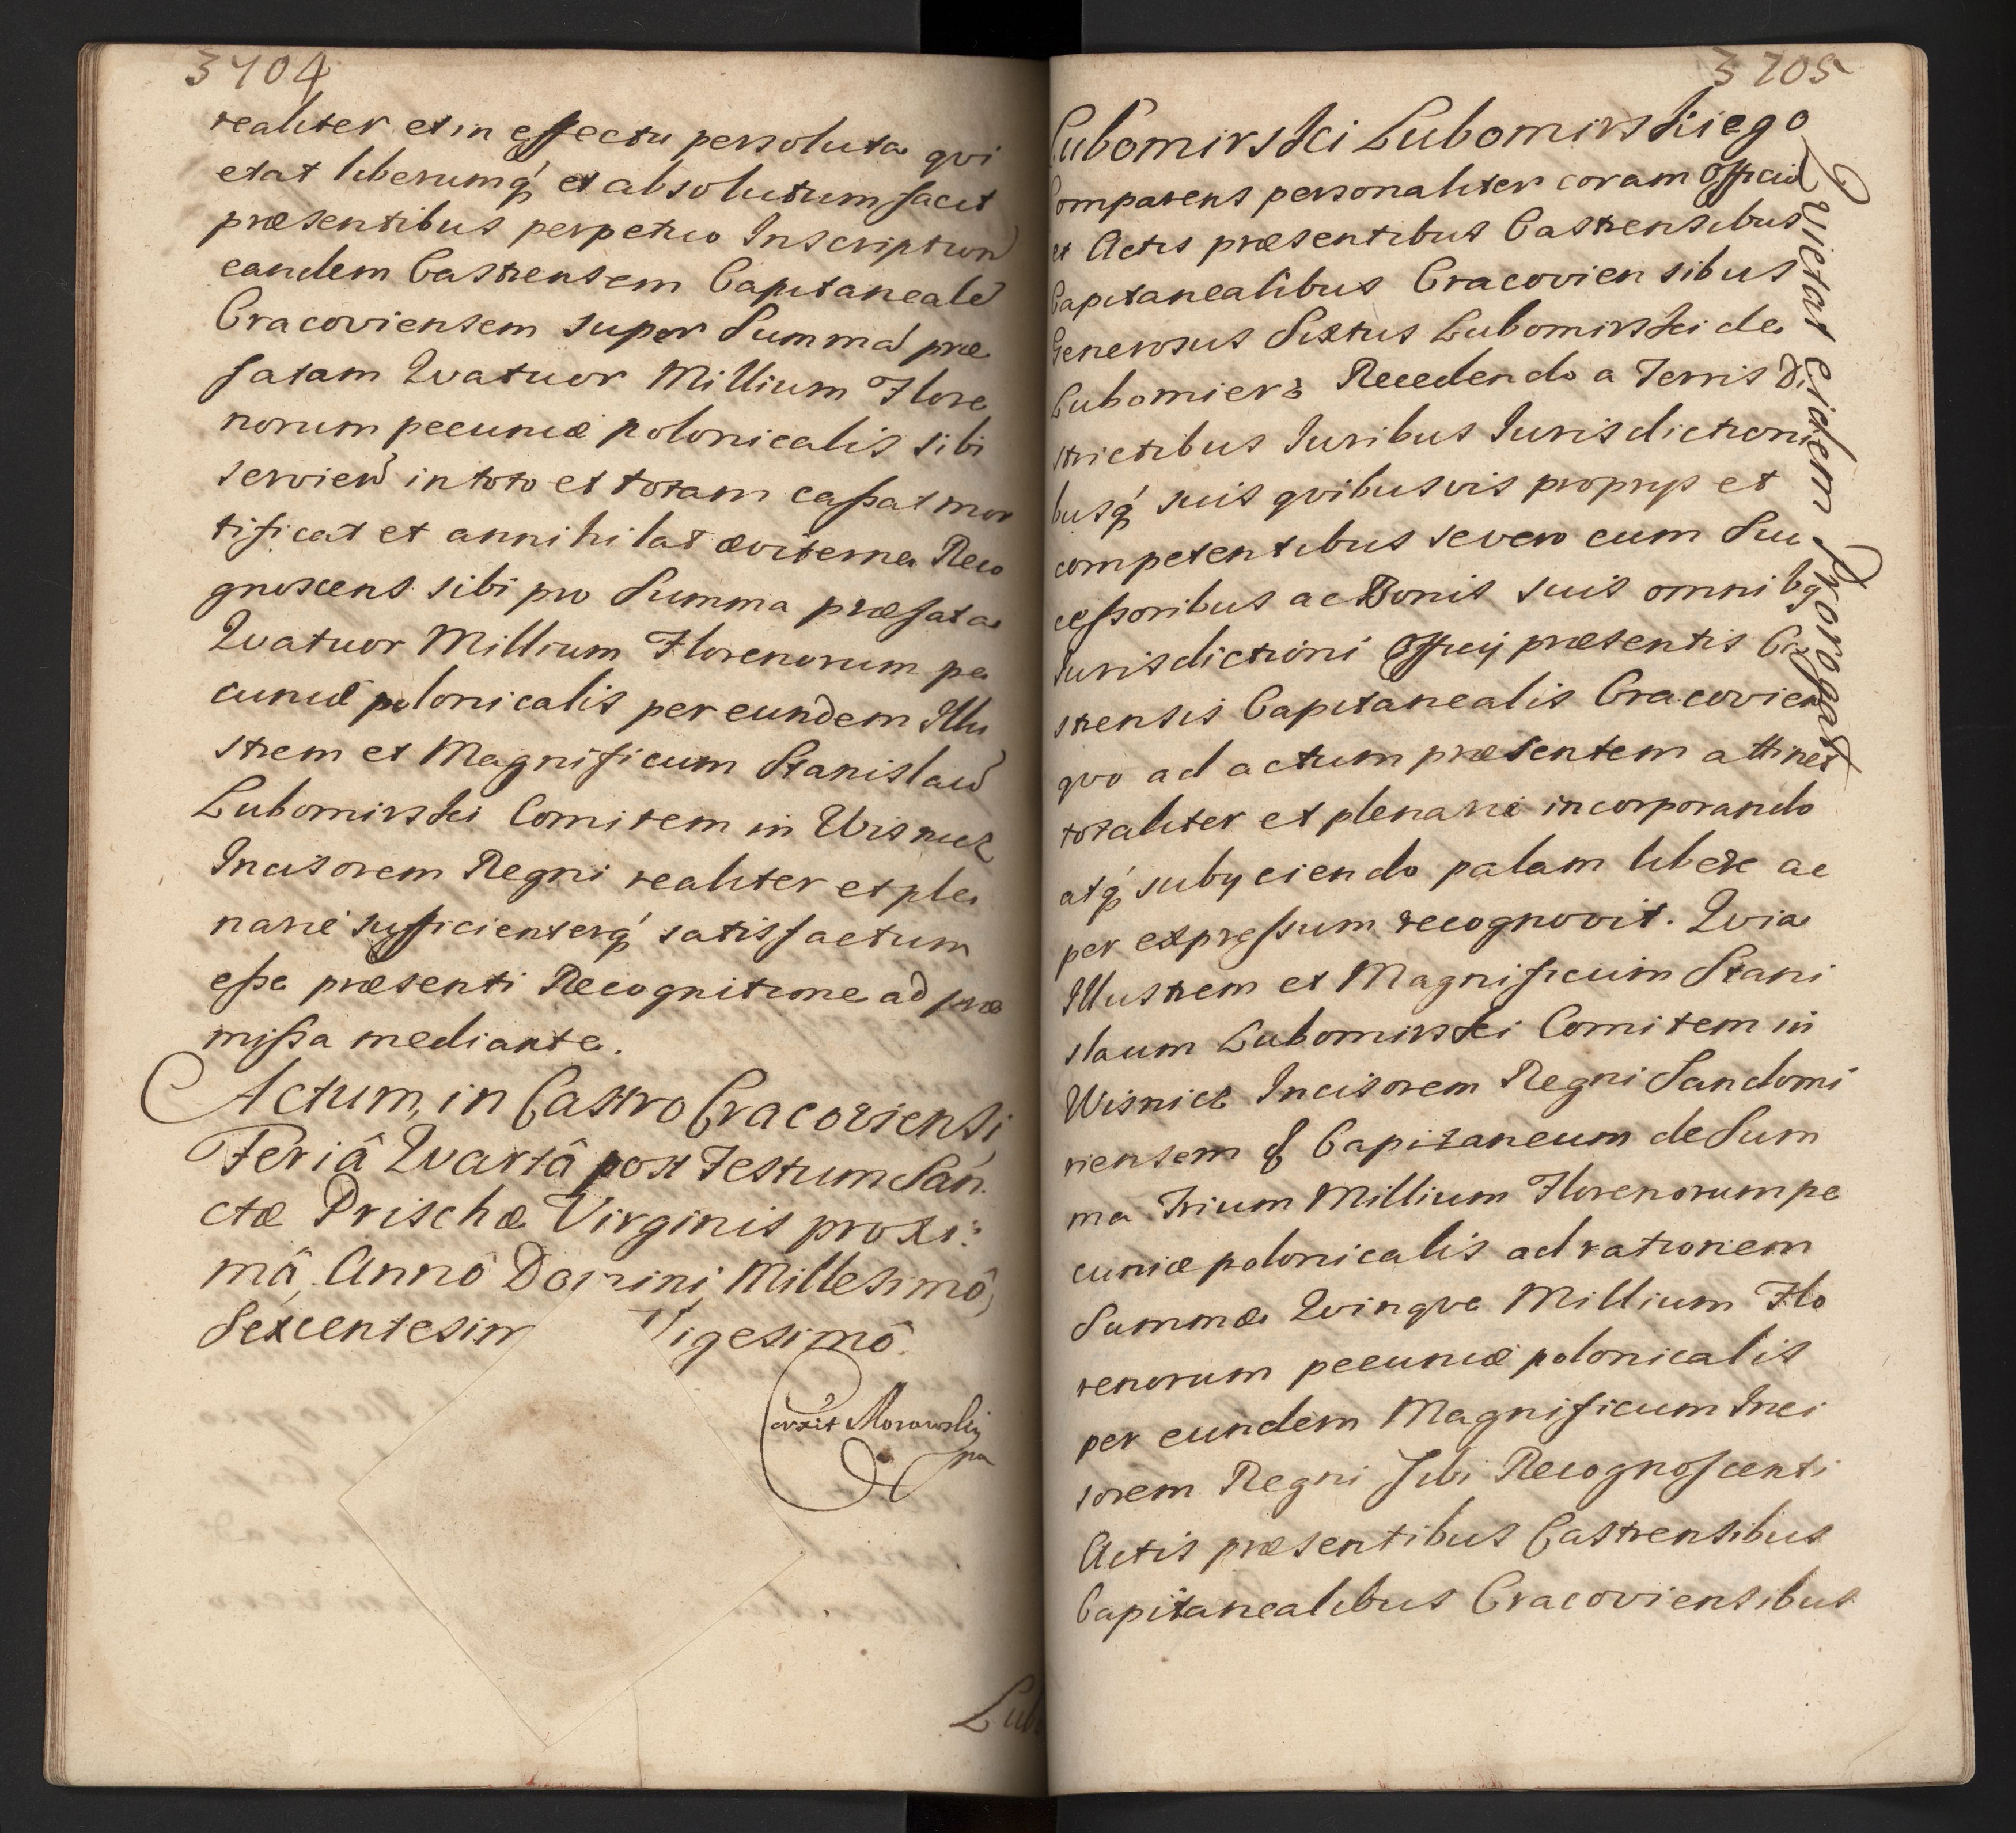 3704
realiter et in effectu persoluta qvi
etat liberumq́ et absolutum facit
præsentibus perpetuo Inscription
eandem Castrensem Capitaneale
Cracoviensem super Summa præ
fatam Qvatuor Millium Flore
norum pecuniæ polonicalis sibi
servien in toto et totam cassat mor
tificat et annihilat æviterne Reco
gnoscens sibi pro Summa præfata
Qvatuor Millium Florenorum pe
cuniæ polonicalis per eundem Illu
strem et Magnificum Stanislaū
Lubomirski Comitem in Wisnicz
Incisorem Regni realiter et ple
narie sufficienterq́ satisfactum
esse præsenti Recognitione ad præ
missa mediante.
Actum, in Castro Cracoviensi,
Feriâ Qvartâ post Festum San
ctæ Prischæ Virginis proxi:
mâ, Annô Domini Millesimô,
Sexcentesim Vigesimô.
Corexit Morawski
mp
Lubo
3705
Lubomirski Lubomirskiego
Comparens personaliter coram Officio
et Actis præsentibus Castrensibus
Capitanealibus Cracoviensibus
Generosus Sixtus Lubomirski de
Lubomierz Recedendo a Terris Di
strictibus Iuribus Iurisdictioni
busq́ suis qvibusvis proprys et
competentibus severo cum Suc
cessoribus ac Bonis suis omnibq
Iurisdictioni Officij præsentis Ca
strensis Capitanealis Cracovien
qvo ad actum præsentem attinet
totaliter et plenarie incorporando
atq́ subyciendo palam libere ac
per expressum recognovit. Qvia
Illustrem et Magnificum Stani
slaum Lubomirski Comitem in
Wisnicz Incisorem Regni Sandomi
riensem & Capitaneum de Sum
ma Trium Millium Florenorum pe
cuniæ polonicalis ad rationem
Summæ Qvinqve Millium Flo
renorum pecuniæ polonicalis
per eundem Magnificum Inci
sorem Regni sibi Recognoscenti
Actis præsentibus Castrensibus
Capitanealibus Cracoviensibus
Qvietat eidem Prorogat